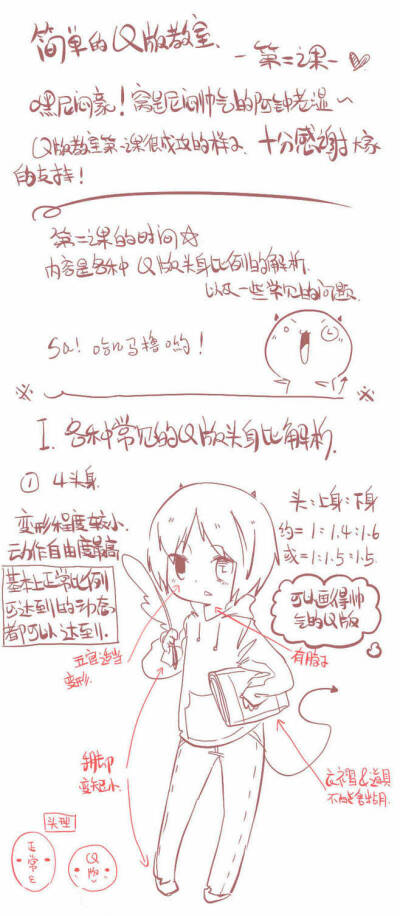 简单的Q版教室
-第二课-
嘿尼闷豪！窝是尼闷帅气的阿钟老湿~
Q版教室第一课很成功的样子 十分感谢大家
的支持！
第二课的时间☆
内容是各种Q版头身比例的解析.
以及一些常见的问题.
Sa! 哈几马撸哟！
※ ※
I. 各种常见的Q版头身比解析.
① 4头身.
变形程度较小.
动作自由度最高
基本上正常比例
可达到的动态
都可以达到.
头:上身:下身
约=1:1.4:1.6
或=1:1.5:1.5.
可以画得帅
气的Q版
五官适当
变形.
有脖子
手脚
变短小.
衣褶&道具
不能含糊.
头型
正常
Q版